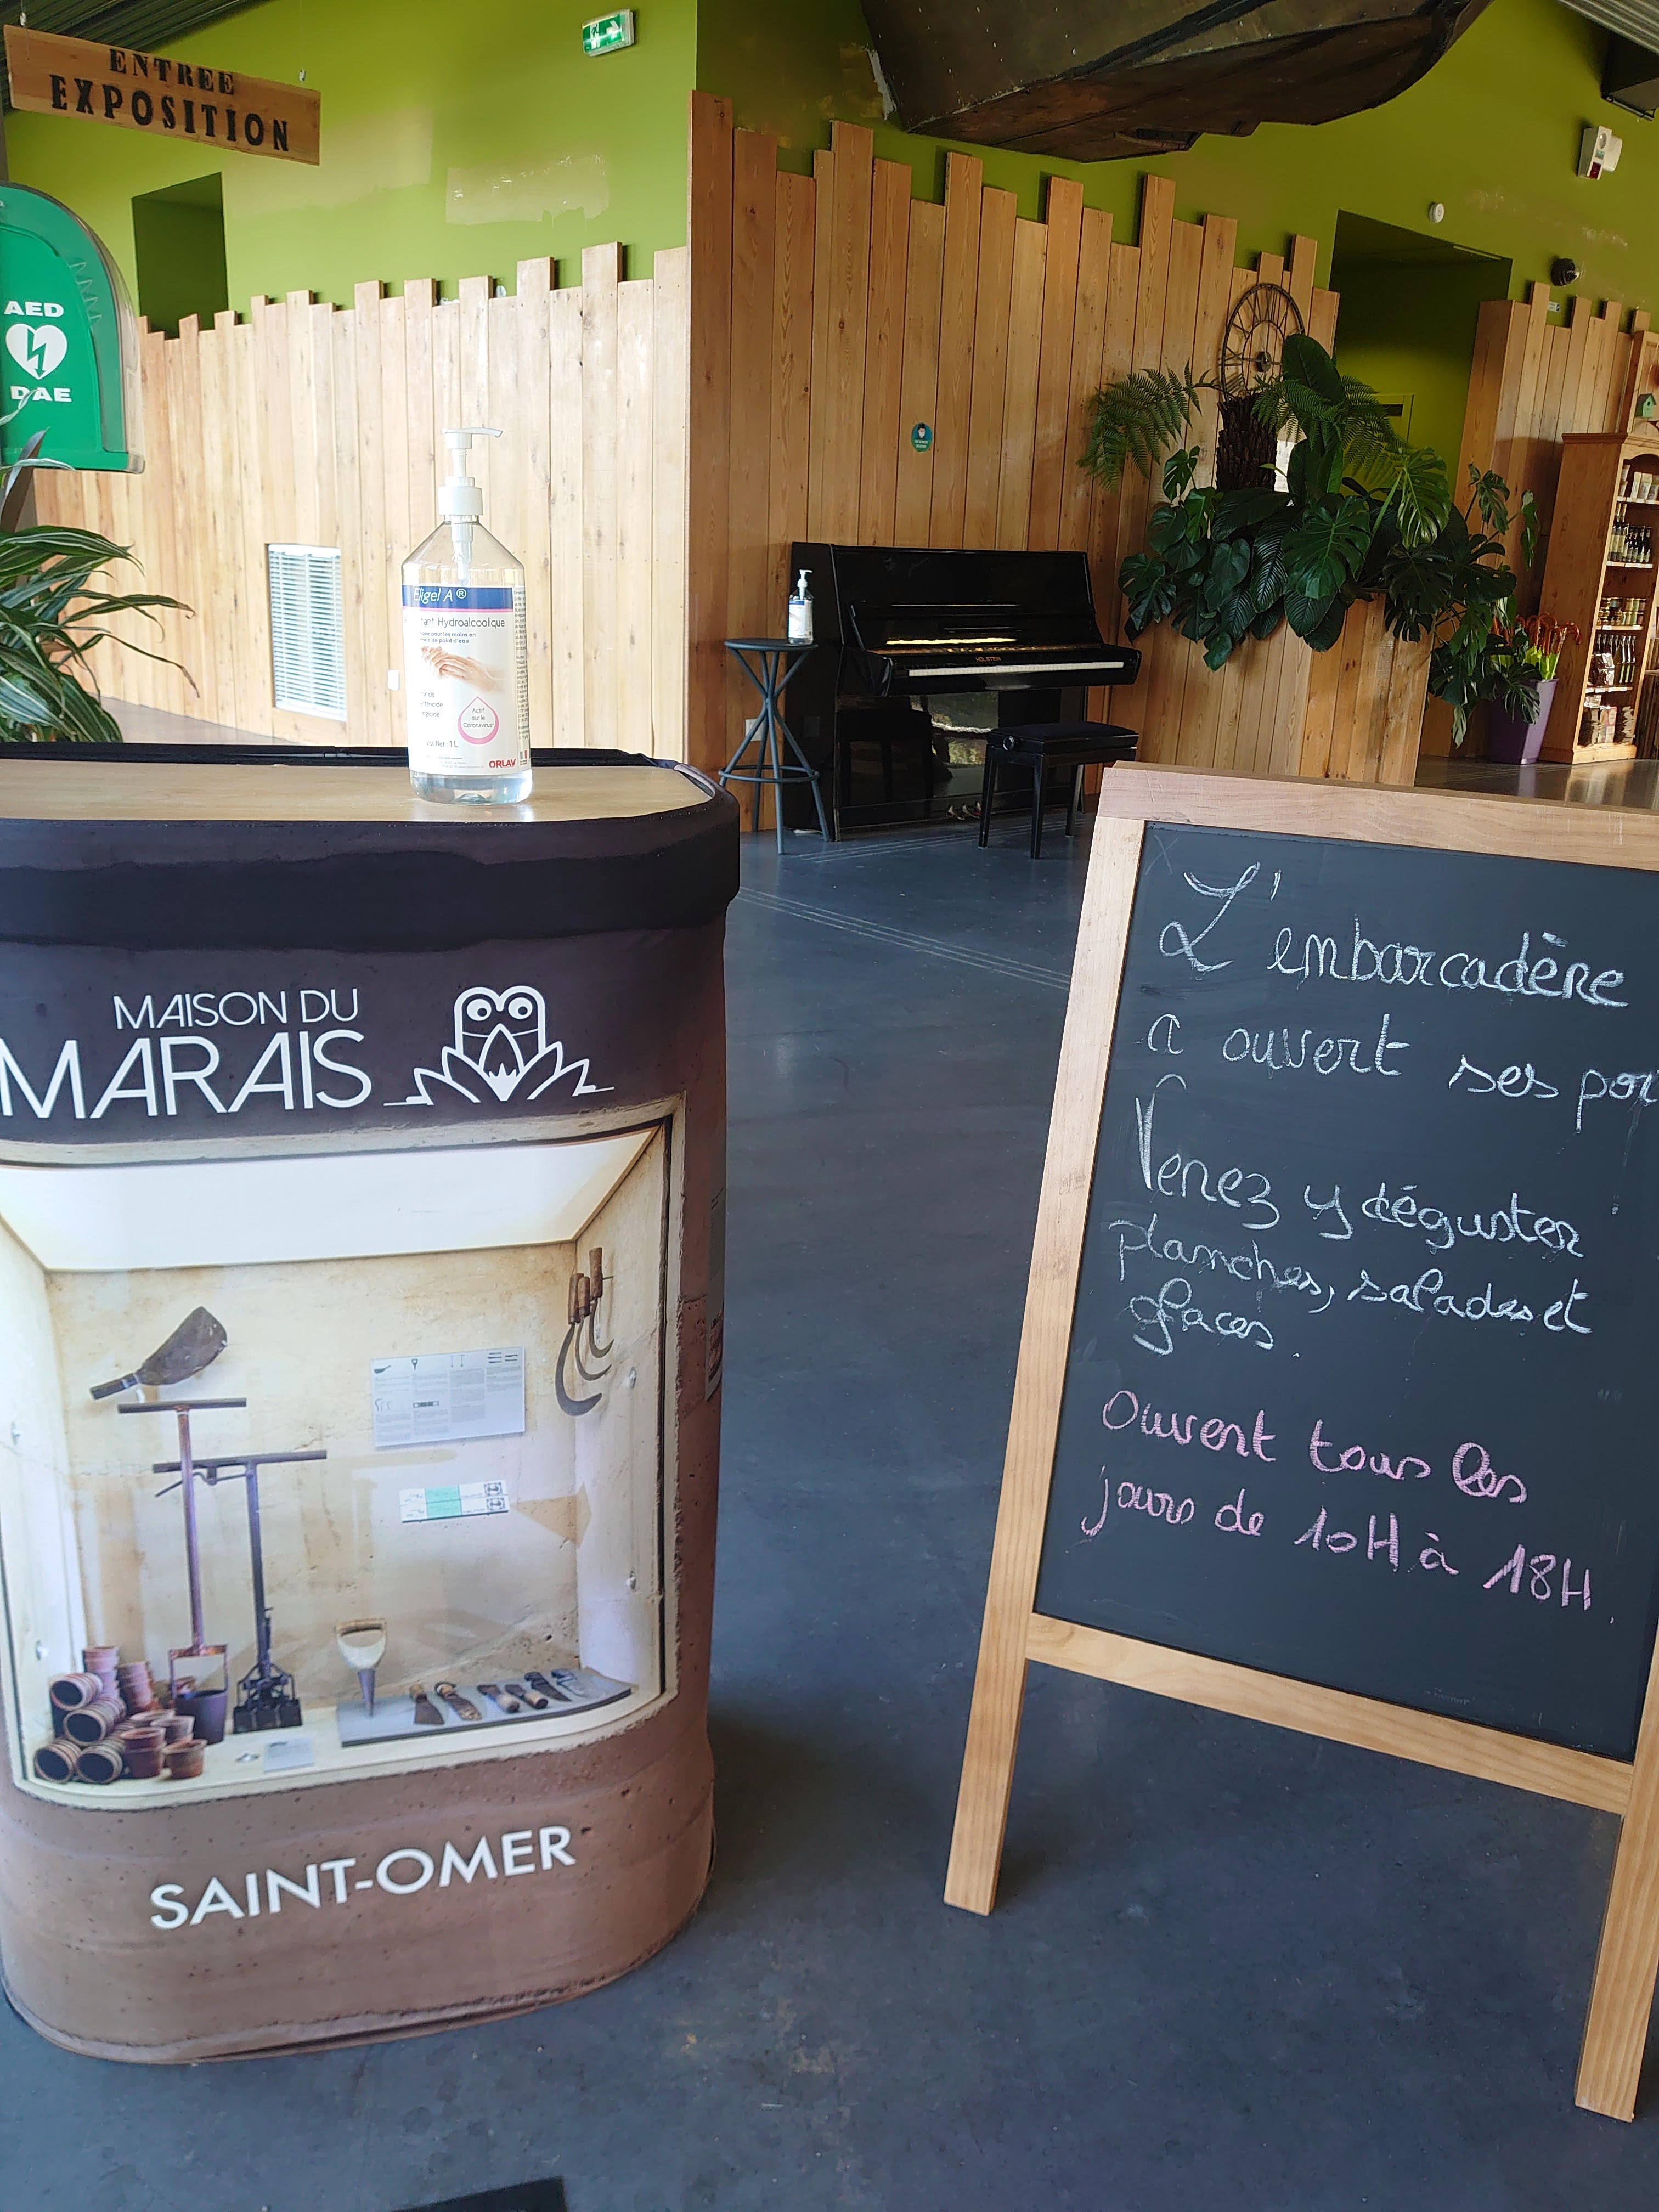 ENTREE
EXPOSITION
AED
DAE
Eligel A®
tant Hydroalcoolique
Actif
sur le
Coronavirus
1L
ORLAV
HOLSTEIN
MAISON DU
MARAIS
SAINT-OMER
L'embarcadère
a ouvert ses por
Venez y déguster
planches, salades et
glaces.
Ouvert tous les
jours de 10H à 18H.